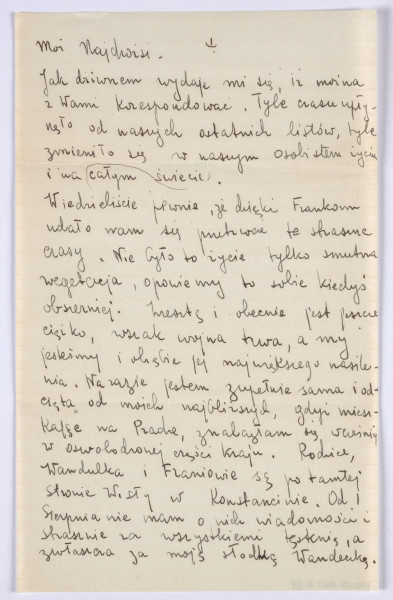 Moi Najdrożsi.
Jak dziwnem wydaje mi się, iż można
z Wami korespondować. Tyle czasu upły-
nęło od naszych ostatnich listów, tyle
zmieniło się w naszym osobistem życiu
i na całym świecie.
Wiedzieliście pewnie, że dzięki Frankom
udało nam się przetrwać te straszne
czasy. Nie było to życie tylko smutna
wegetacja, opowiemy to sobie kiedyś
obszerniej. Zresztą i obecnie jest jeszcze
ciężko, wszak wojna trwa, a my
jesteśmy i obiektem jej największego nasile-
nia. Narazie jestem zupełnie sama i od-
cięta od moich najbliższych, gdyż miesz-
kając na Pradze, znalazłam się wcześniej
w oswobodzonej części kraju. Rodzice,
Wandulka i Franiowie są po tamtej
stronie Wisły w Konstancinie. Od 1
Sierpnia nie mam o nich wiadomości i
strasznie za wszystkiemi tęsknię, a
zwłaszcza za moją słodką Wandeczką.